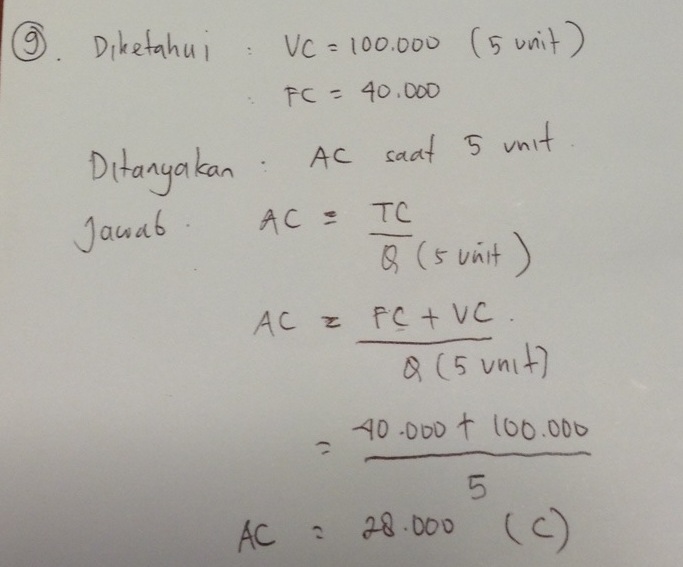 9. Diketahui : VC = 100.000 (5 unit)
: FC = 40.000
Ditanyakan : AC saat 5 unit.
Jawab. AC = TC
Q (5 unit)
AC = FC + VC.
Q (5 unit)
= 40.000 + 100.000
5
AC = 28.000 (C)